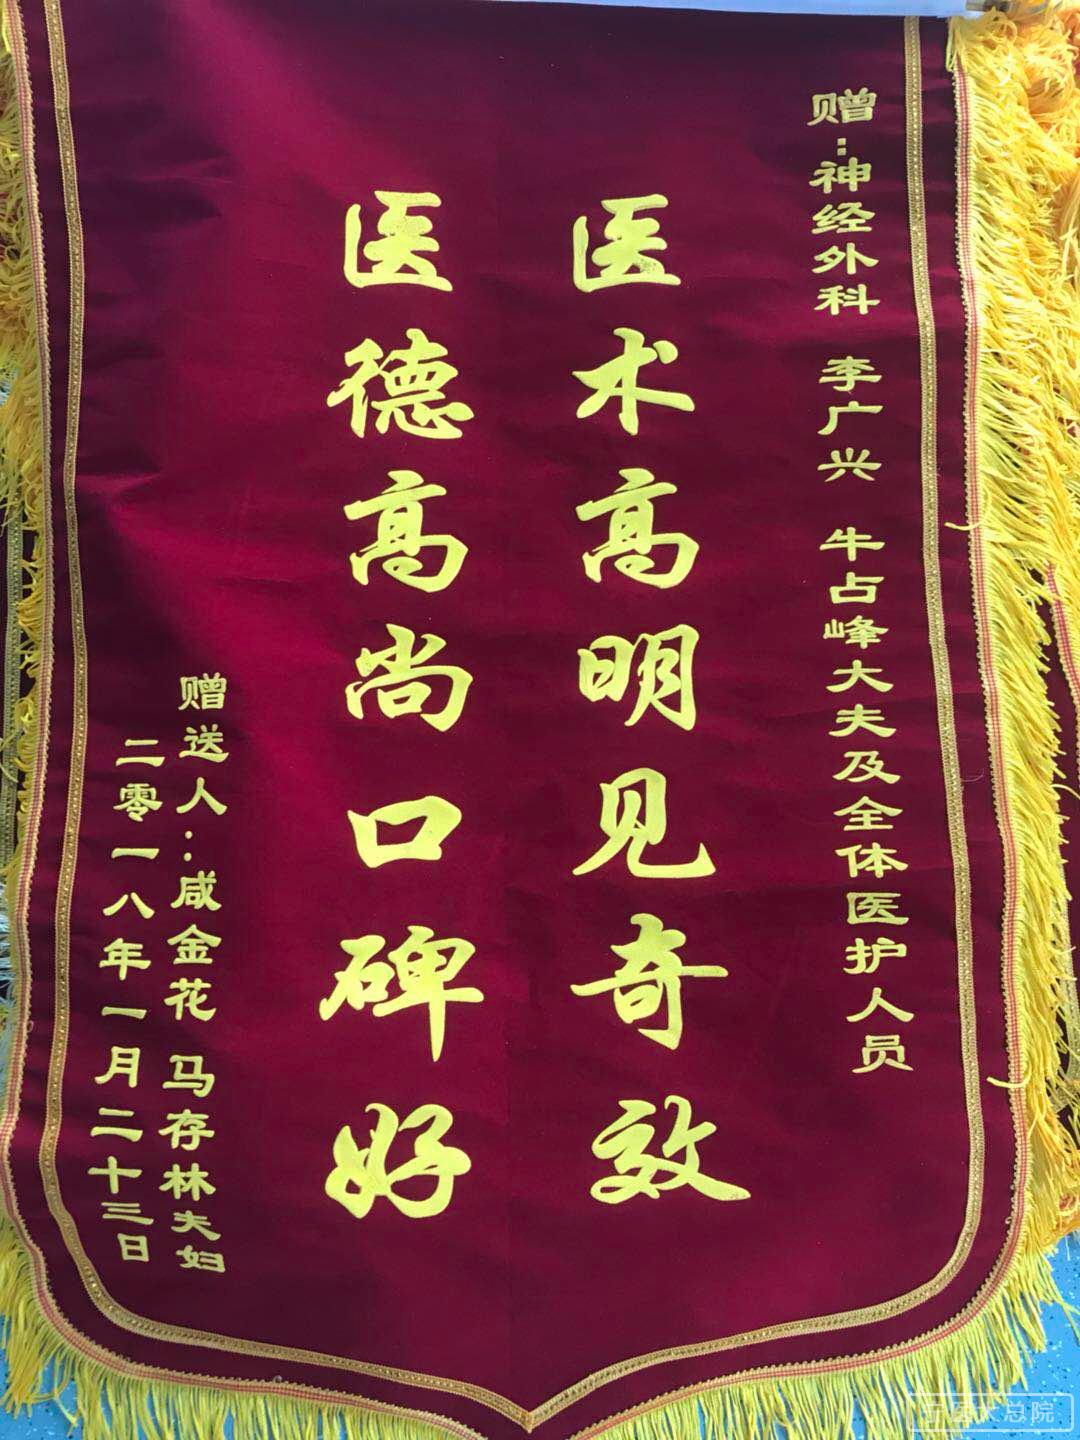 赠:神经外科 李广兴 牛占峰大夫及全体医护人员
医术高明见奇效
医德高尚口碑好
赠送人:咸金花 马存林夫妇
二零一八年一月二十三日
宁医大总院